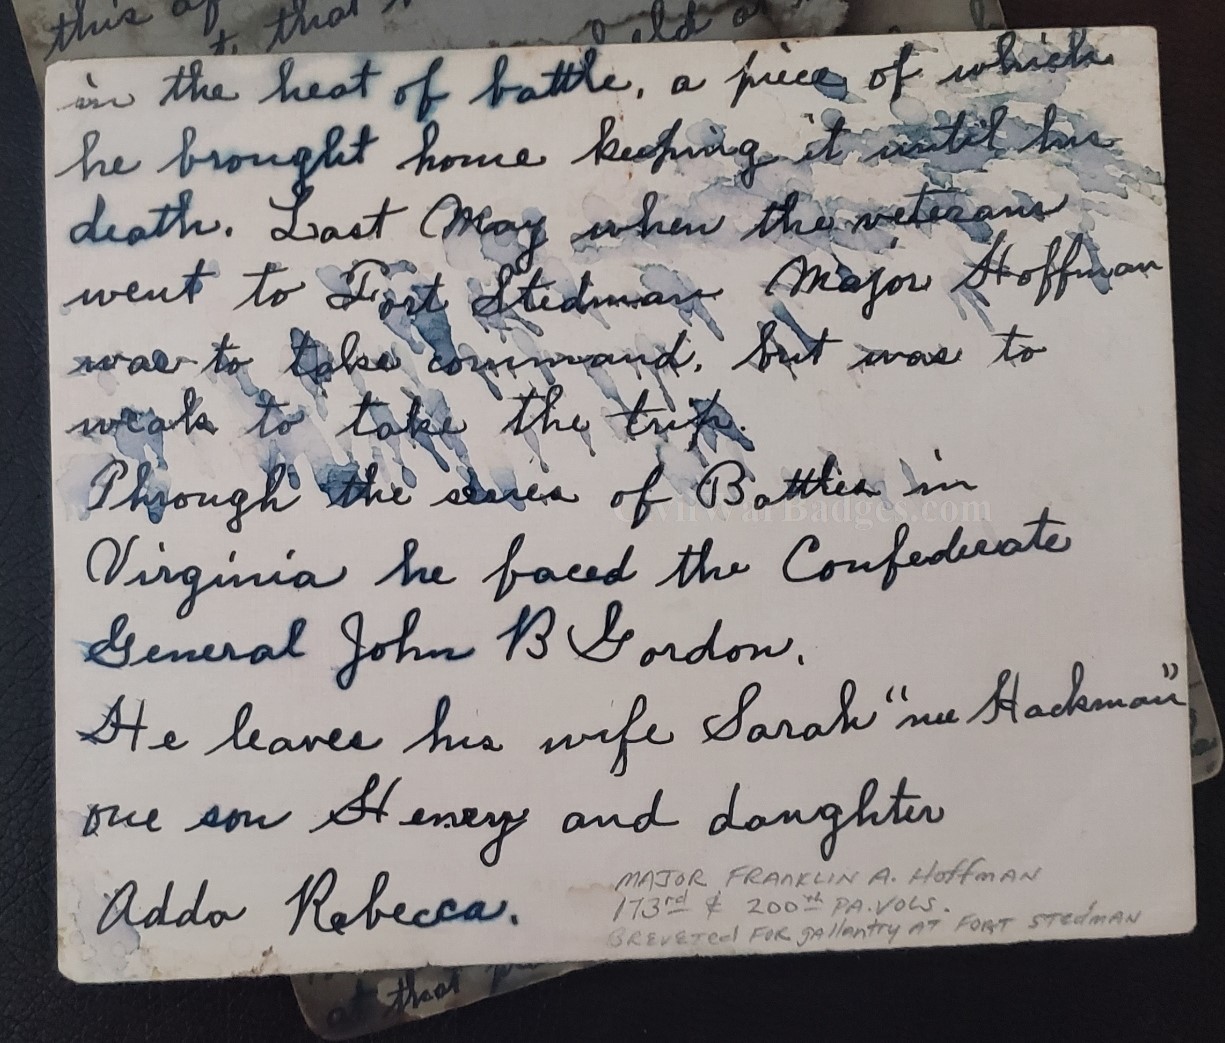 this
that
in the heat of battle, a piece of which
he brought home keeping it until his
death. Last May when the veterans
went to Fort Stedman Major Hoffman
was to take command, but was to
weak to take the trip.
Through the series of Battles in
CivilWarBadges.com
Virginia he faced the Confederate
General John B Gordon.
He leaves his wife Sarah "nee Hackman"
one son Henry and daughter
Adda Rebecca.
MAJOR FRANKLIN A. HOFFMAN
173rd & 200th PA. VOLS.
BREVETED FOR gallantry AT FORT STEDMAN
at that